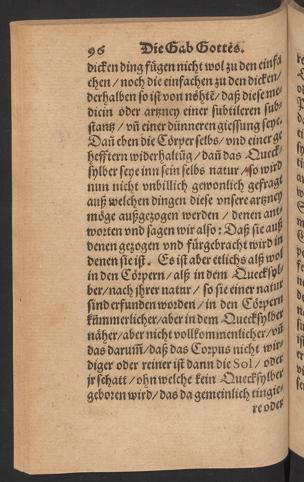 96 Die Gab Gottes.
dicken ding fügen nicht wol zu den einfa
chen / noch die einfachen zu den dicken /
derhalben so ist von nöhtē / daß diese me
dicin oder artzney einer subtileren sub-
stantz / vñ einer dünneren giessung seye.
Dañ eben die Cörper selbs / vnd einer ge
heff tern widerhaltūg / dañ das Queck-
sylber seye inn sein selbs natur / so wird
nun nicht vnbillich gewonlich gefragt
auß welchen dingen diese vnsere artzney
möge außgezogen werden / denen ant
worten vnd sagen wir also: Daß sie auß
denen gezogen vnd fürgebracht wird in
denen sie ist. Es ist aber etlichs alß wol
in den Cörpern / alß in dem Quecksyl
ber / nach jhrer natur / so sie einer natur
sind erfunden worden / in den Cörpern
kümmerlicher / aber in dem Quecksylber
näher / aber nicht vollkommenlicher / vñ
das darum̃ / daß das Corpus nicht wir-
diger oder reiner ist dann die Sol / oder
jr schatt / ohn welche kein Quecksylber
geboren wird / das da gemeinlich tingie-
re oder